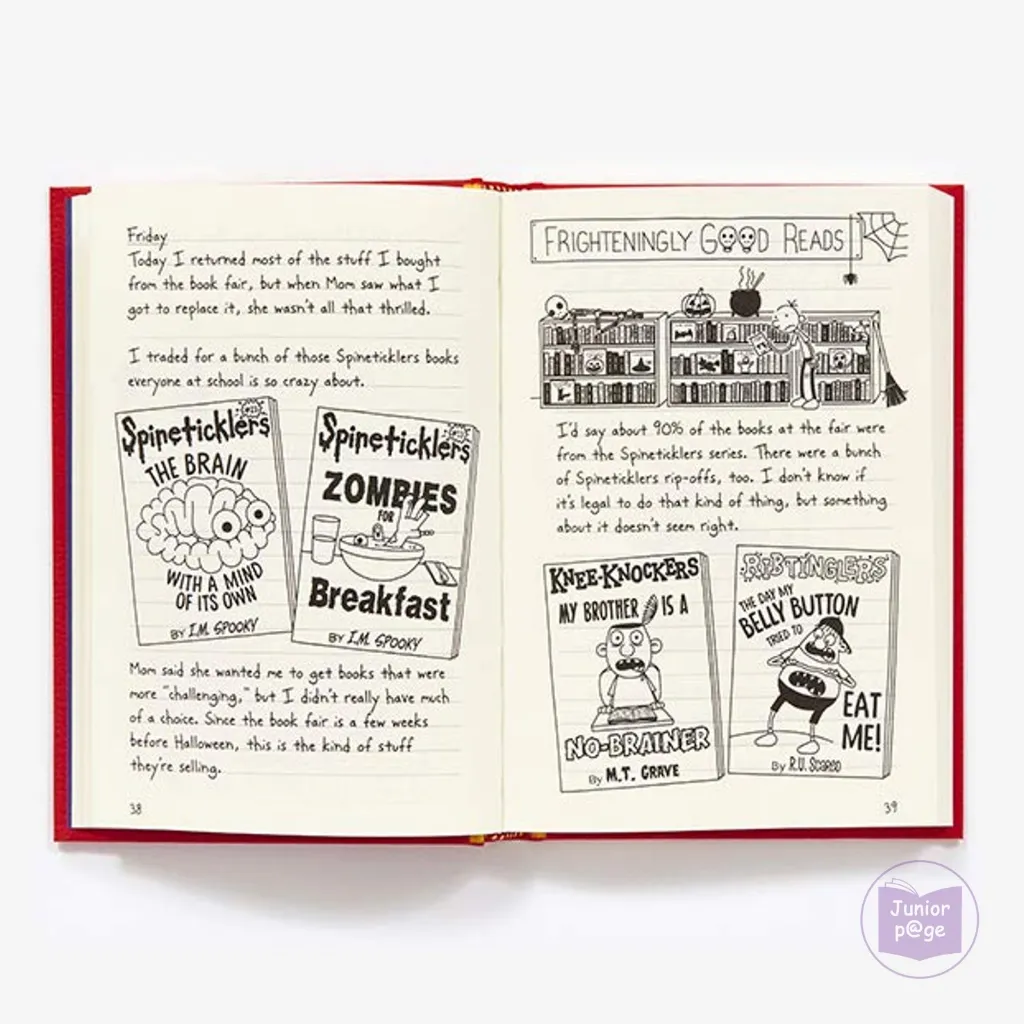 Friday
Today I returned most of the stuff I bought
from the book fair, but when Mom saw what I
got to replace it, she wasn't all that thrilled.
I traded for a bunch of those Spineticklers books
everyone at school is so crazy about.
Spineticklers
THE BRAIN
WITH A MIND
OF ITS OWN
BY I.M. SPOOKY
Spineticklers
ZOMBIES
FOR
Breakfast
BY I.M. SPOOKY
Mom said she wanted me to get books that were
more "challenging," but I didn't really have much
of a choice. Since the book fair is a few weeks
before Halloween, this is the kind of stuff
they're selling.
38
FRIGHTENINGLY GOOD READS
I'd say about 90% of the books at the fair were
from the Spineticklers series. There were a bunch
of Spineticklers rip-offs, too. I don't know if
it's legal to do that kind of thing, but something
about it doesn't seem right.
KNEE-KNOCKERS
MY BROTHER IS A
NO-BRAINER
By M.T. GRAVE
RIBTINGLERS
THE DAY MY
BELLY BUTTON
TRIED TO
EAT
ME!
By R.U. Scared
39
Junior
p@ge